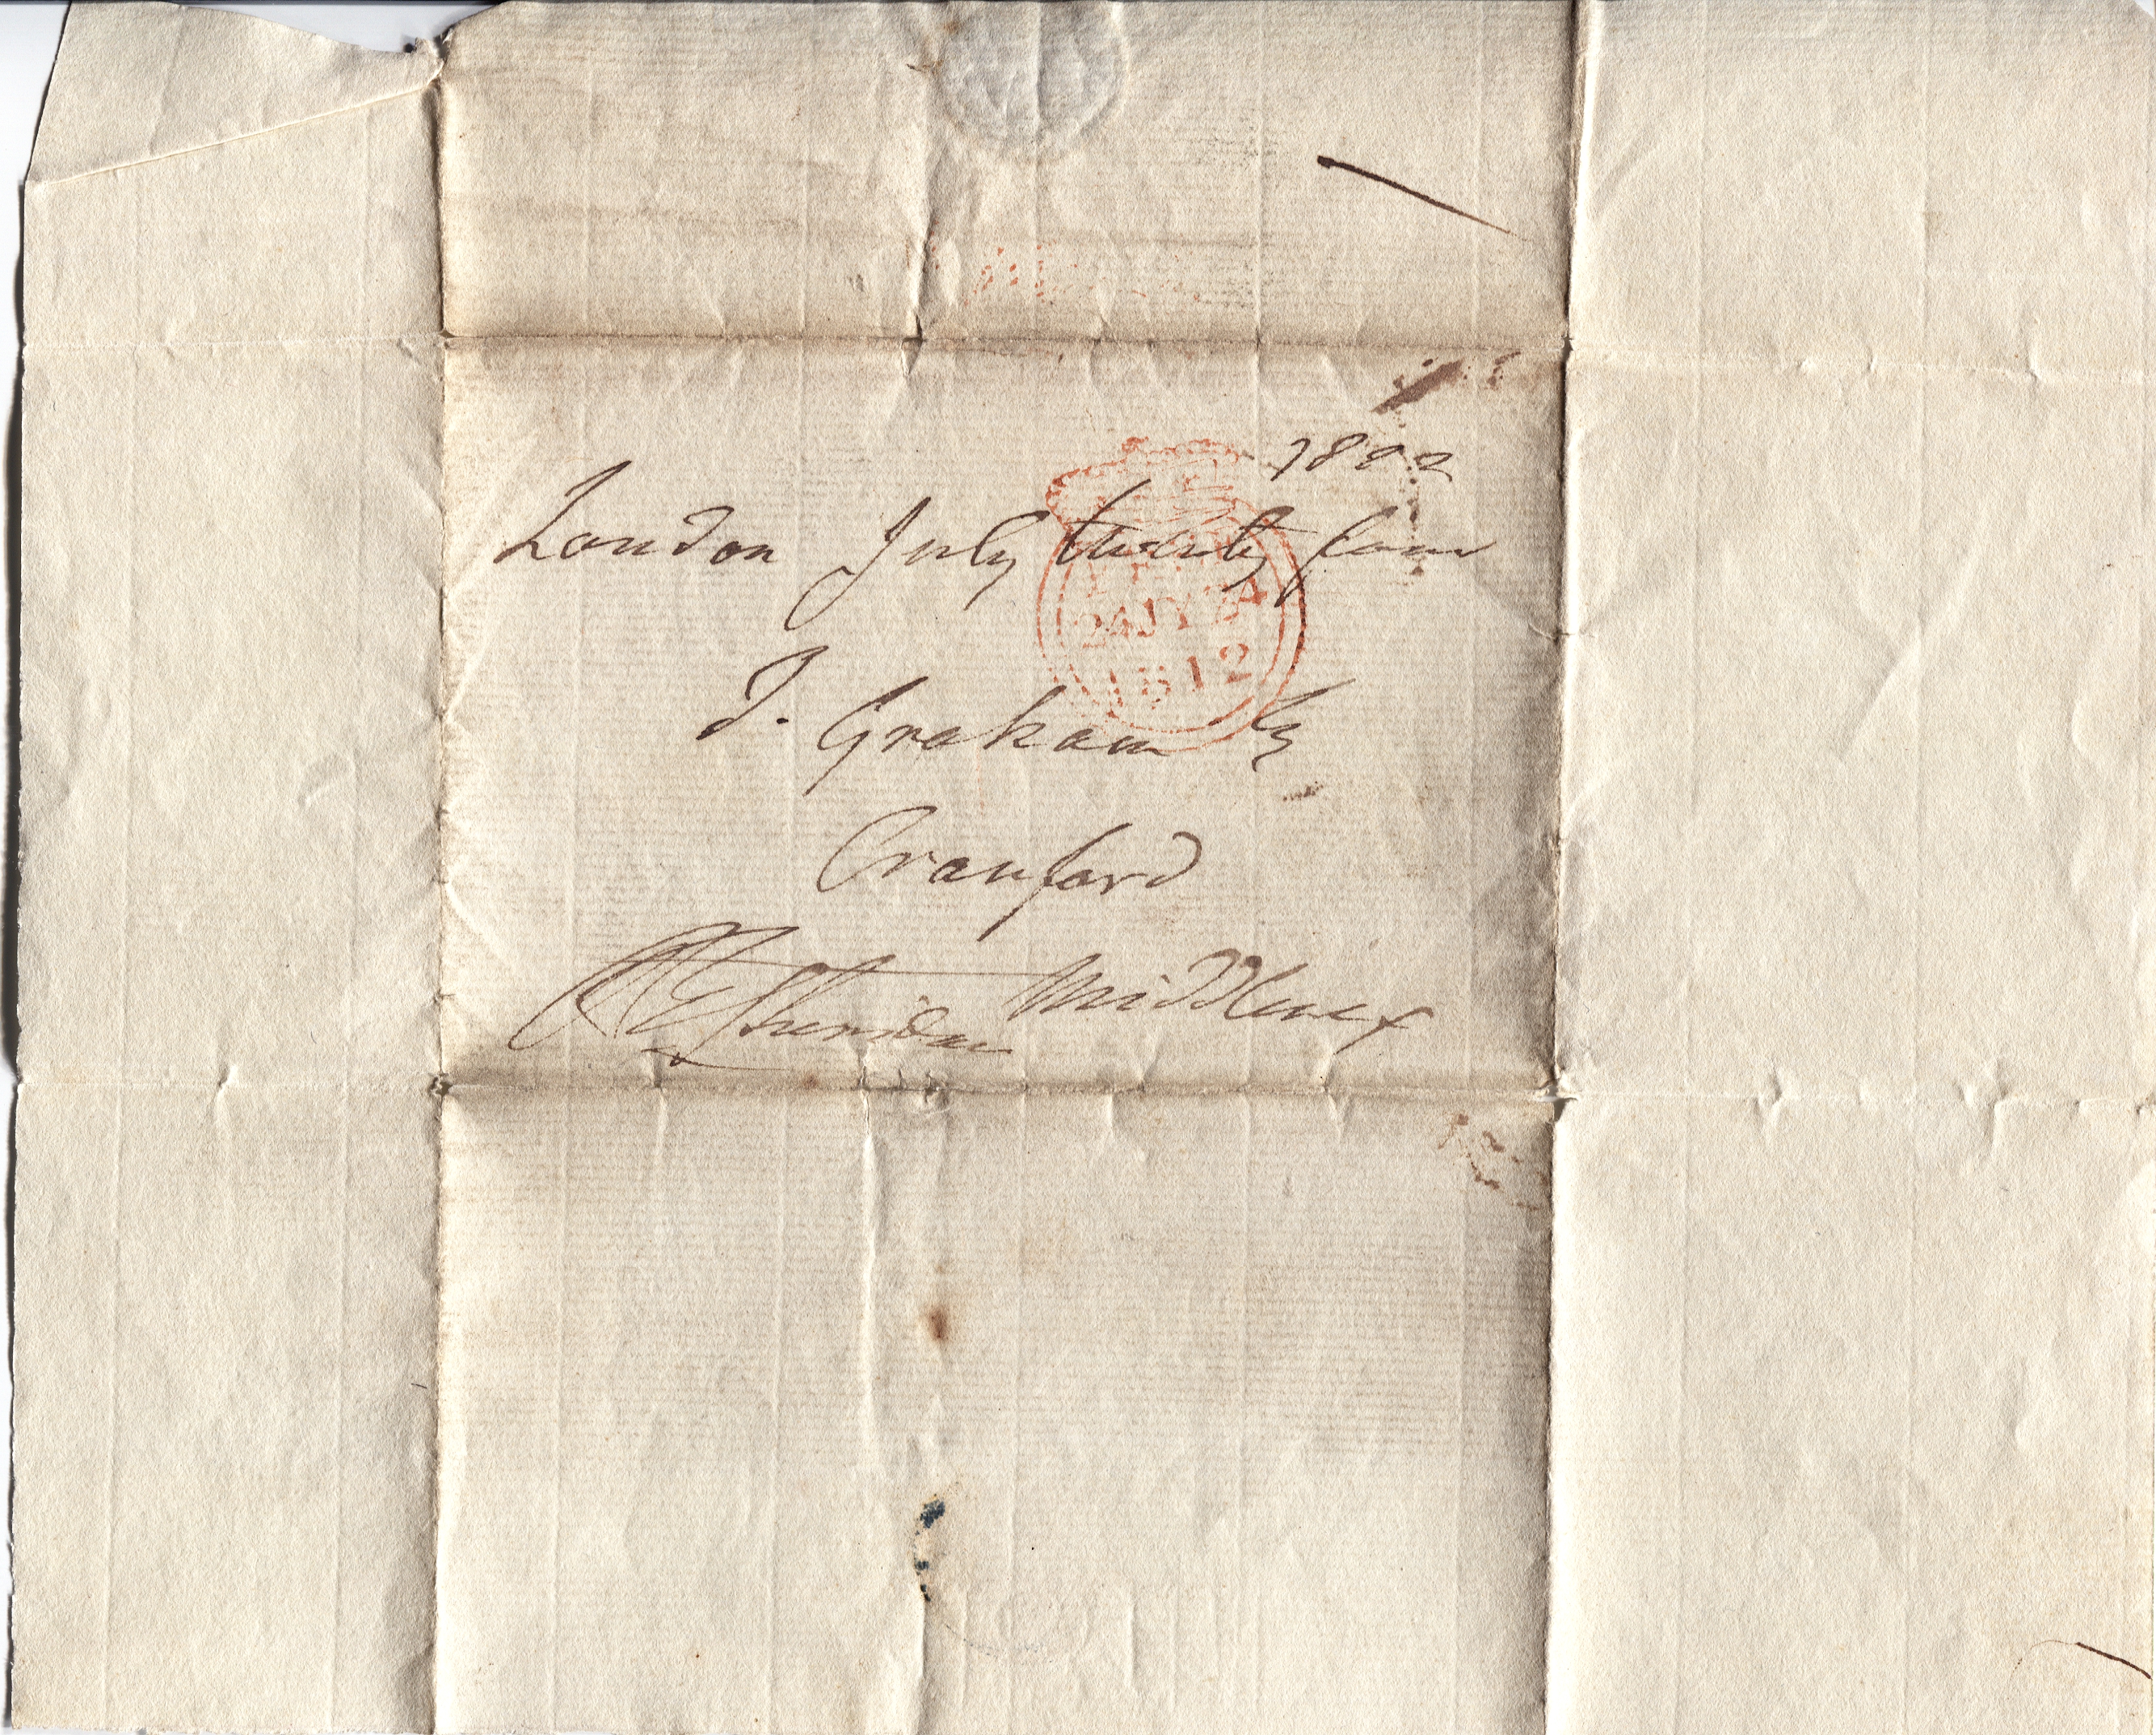 1812
London July twenty four
24JY24
1812
T. Graham Esq
Cranford
Middlesex
RBSheridan